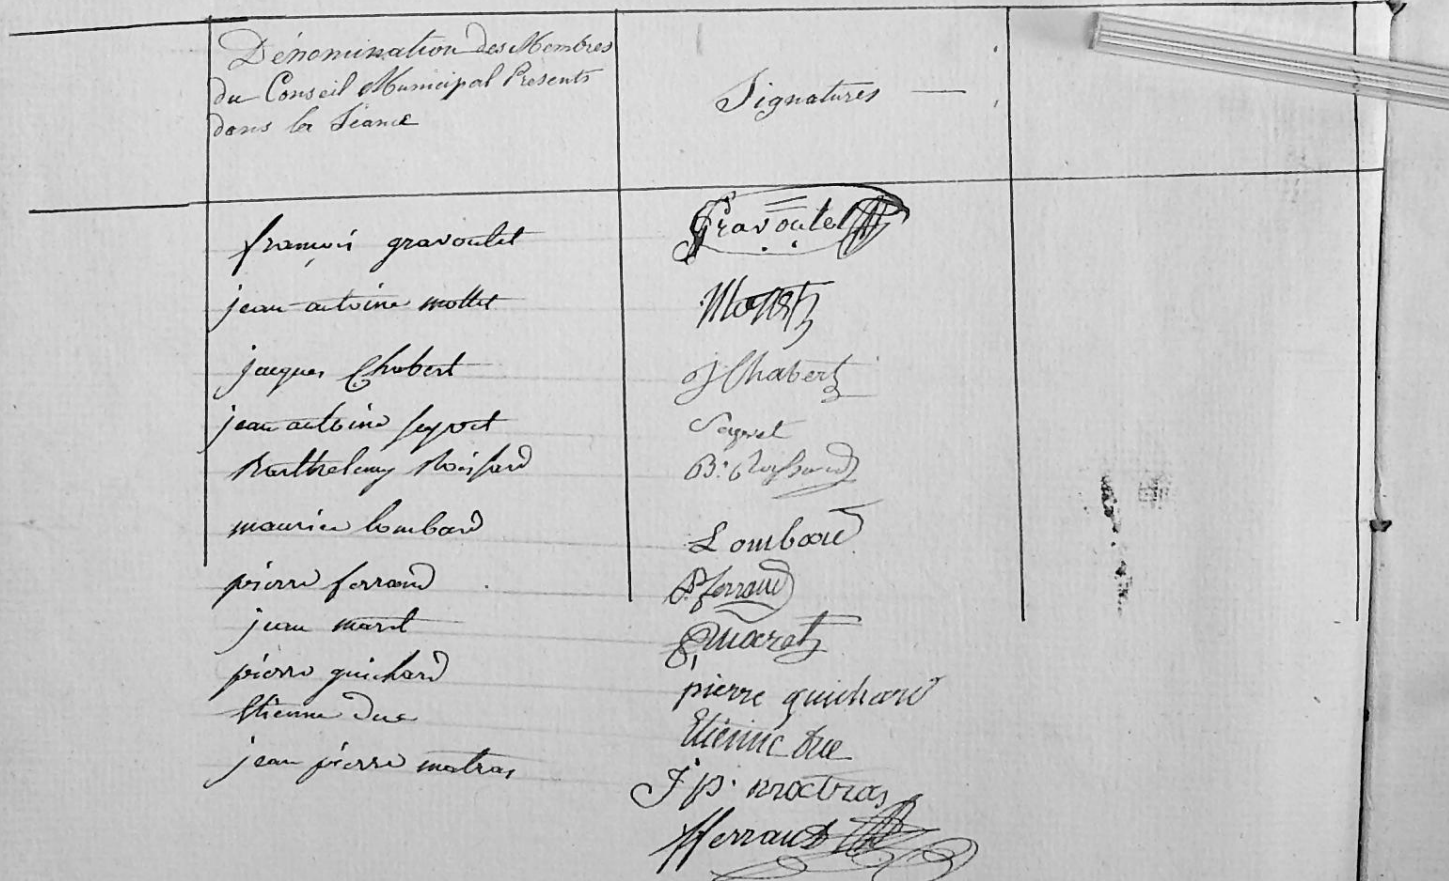 Dénomination des Membres
du Conseil Municipal Présents
dans la Séance
Signatures —
françois gravoulet
Gravoulet
jean antoine mottet
Mottet
jacques Chabert
J Chabert
jean antoine seyvet
Seyvet
Barthelemy Roissard
B. Roissard
maurice lombard
Lombard
pierre ferraud
P. ferraud
jean maret
maret
pierre guichard
pierre guichard
Etienne Duc
Etienne Duc
jean pierre matras
J p. matras
ferraud